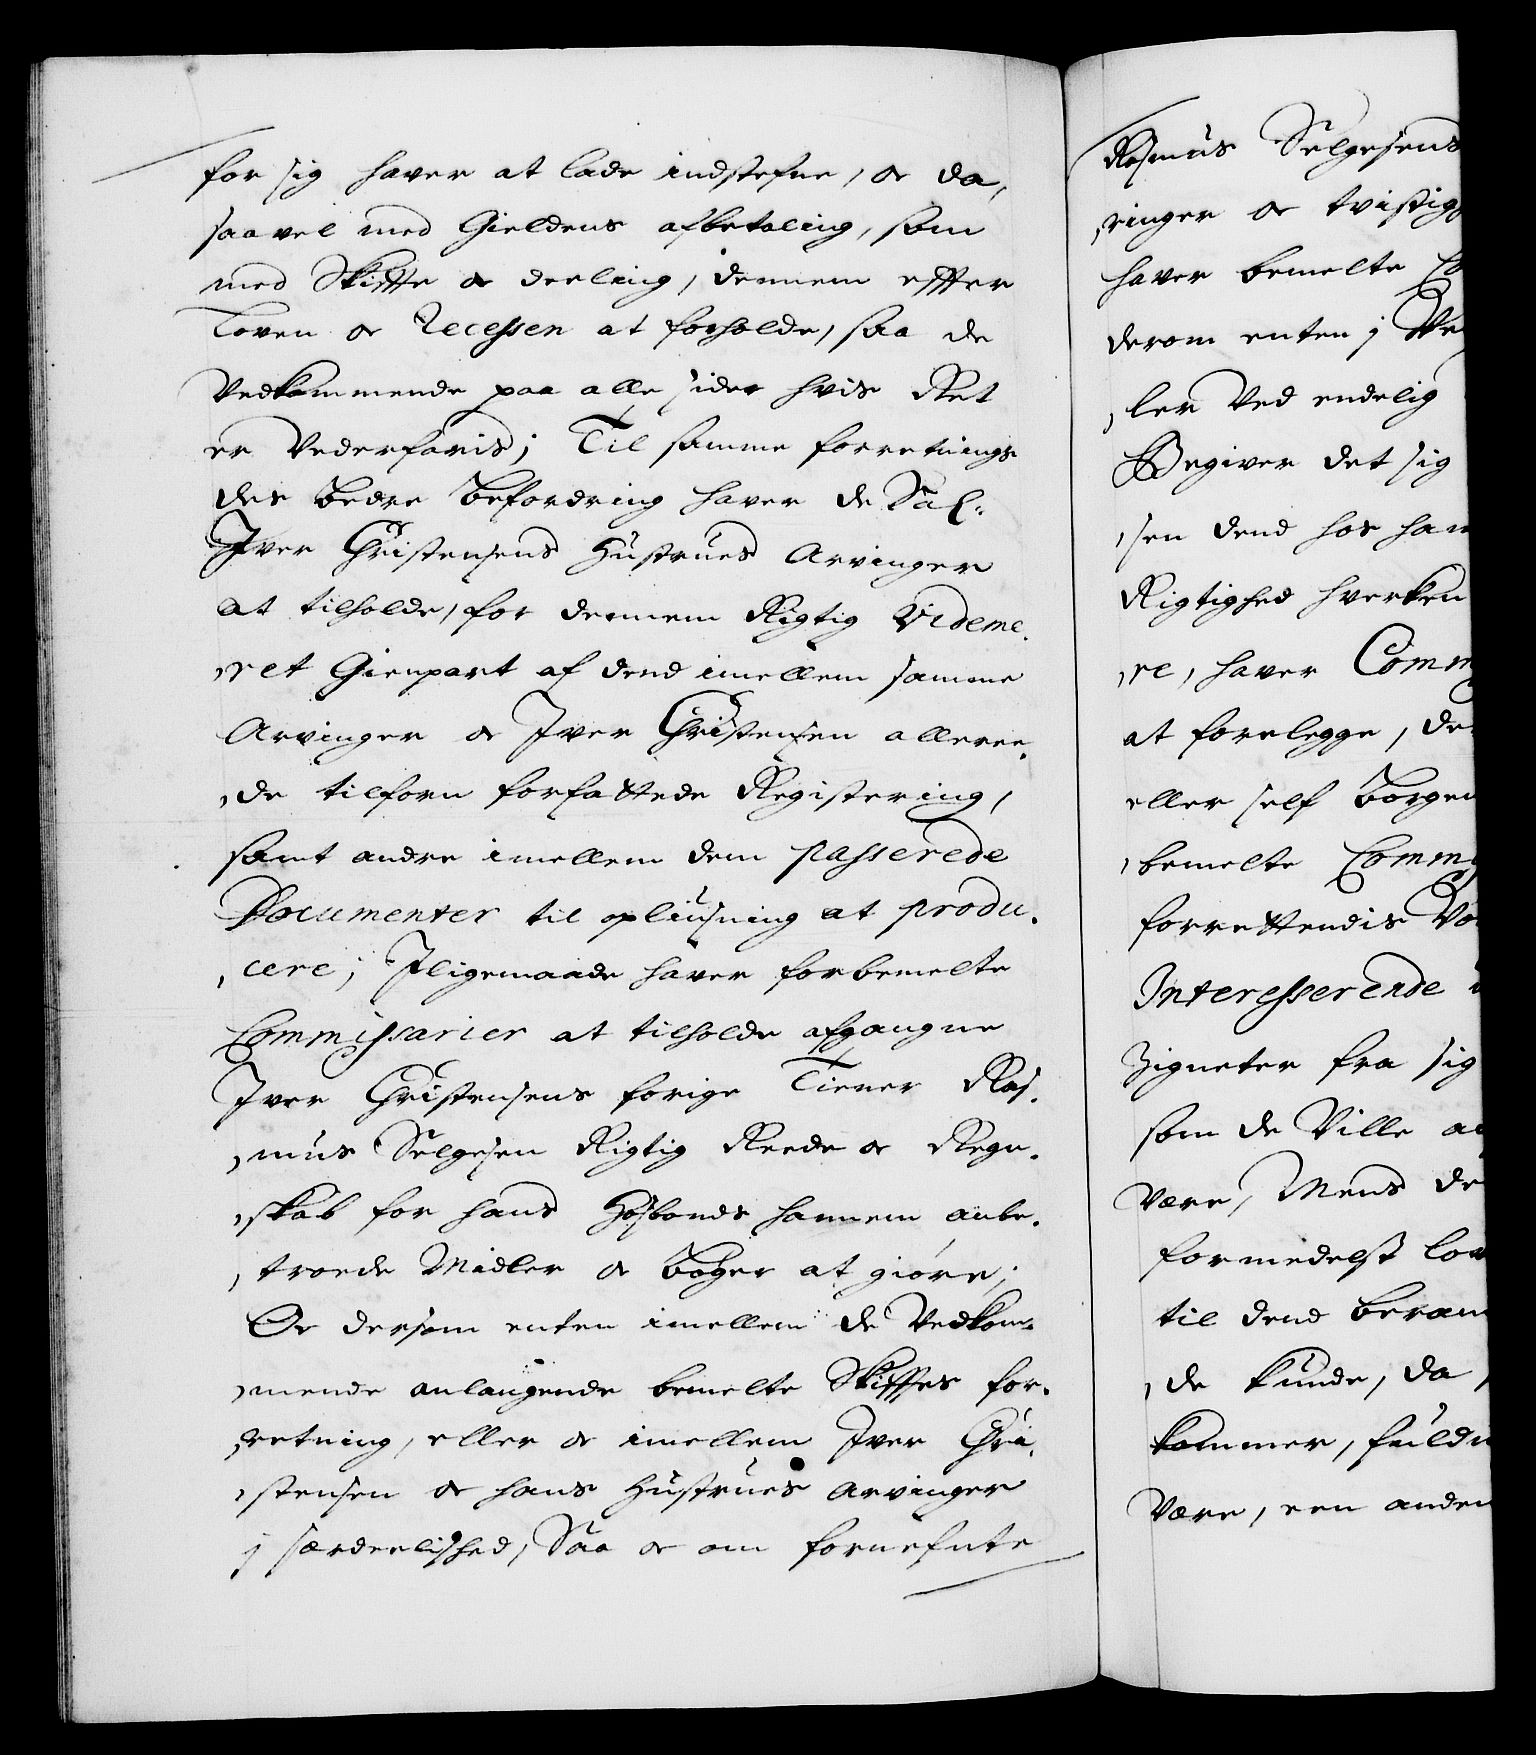 for sig hafver at lade indstefne, oc da,
saavel med Gieldens afbetaling, som
med Skiffte oc deeling, dennem effter
Loven oc Recessen at forholde, saa de
Vedkommende paa alle sider hvis Ret
er Vederfaris; Til samme forretnings
des bedre befordring hafver de Sal:
Iver Christensens Hustrues Arvinger
at tilholde, for dennem Rigtig Videme,
,ret Gienpart af dend imellem samme
Arvinger oc Iver Christensen alleree,
,de tilforn forfattede Registering,
samt andre imellem dem passerede
Documenter til opliusning at produ,
,cere; Iligemaade hafver forbemelte
Commissarier at tilholde afgangne
Iver Christensens forige Tiener Ras,
,mus Selgesen Rigtig Reede oc Regn,
,skab for hans Hosbonds hannem anbe,
,troede Midler oc bøger at giøre;
Oc dersom enten imellem de Vedkom,
,mende anlangende bemelte Skifftes for,
,retning, eller oc imellem Iver Chri,
,stensen oc hans Hustrues Arvinger
j særdeelished, Saa oc om fornefnte
Rasmus Selgesens
,ringer oc tvistig
hafver bemelte Co
derom enten j Ve
,ler Ved endelig
Begiver det sig
,sen dend hos han
Rigtighed hverken
,re, hafver Comm
at forelegge, de
eller self borgen
,bemelte Comm
forrettendis Vo
Interesserende
Zigneter fra sig
som de Ville a
være, Mens de
formedelst lov
til dend beram
,de kunde, da
kommer, fuld
være, een anden